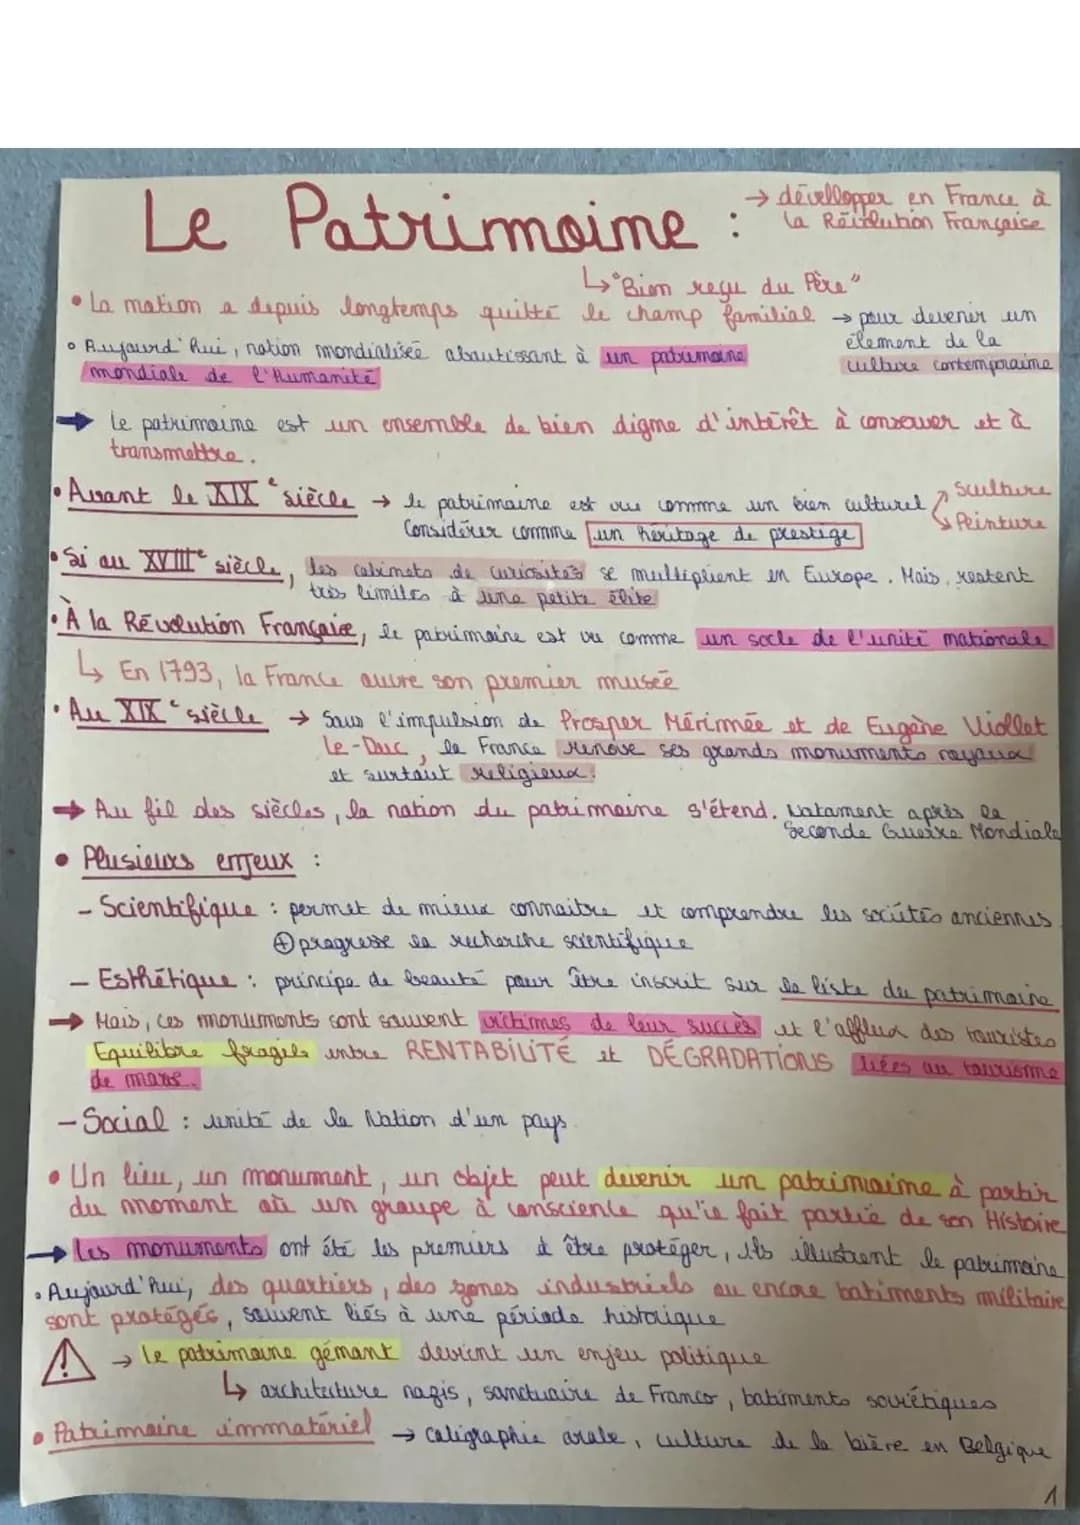 Le Patrimoine :
→ développer en France à
la Révolution Française
↳ "Bien reçu du Père"
• La nation a depuis longtemps quitté le champ familial → pour devenir un
élement de la
culture contemporaine
• Aujourd'hui, notion mondialisée aboutissant à un patrimoine
mondiale de l'Humanité
→ Le patrimoine est un ensemble de bien digne d'intérêt à conserver et à
transmettre.
• Avant le XIXe siècle → le patrimoine est vue comme un bien culturel
Sculture
Peinture
Considérer comme un héritage de prestige
• Si au XVIIIe siècle, les cabinets de curiosités se multiplient en Europe. Mais, restent
très limités à une petite élite
• À la Révolution Française, le patrimoine est vu comme un socle de l'unité nationale
↳ En 1793, la France ouvre son premier musée
• Au XIXe siècle → Sous l'impulsion de Prosper Mérimée et de Eugène Viollet
Le-Duc, la France rénove ses grands monuments royaux
et surtout religieux.
→ Au fil des siècles, la nation du patrimoine s'étend. Notament après la
Seconde Guerre Mondiale
• Plusieurs enjeux :
- Scientifique : permet de mieux connaitre et comprendre les sociétés anciennes
⊕ progresse la recherche scientifique
- Esthétique : principe de beauté pour être inscrit sur la liste du patrimoine
→ Mais, ces monuments sont souvent victimes de leur succès et l'afflux des touristes
Equilibre fragile entre RENTABILITÉ et DÉGRADATIONS liées au tourisme
de mass.
- Social : unité de la Nation d'un pays
• Un lieu, un monument, un objet peut devenir un patrimoine à partir
du moment où un groupe à conscience qu'il fait partie de son Histoire
→ Les monuments ont été les premiers à être protéger, ils illustrent le patrimoine
• Aujourd'hui, des quartiers, des zones industriels ou encore batiments militaire
sont protégés, souvent liés à une période historique
⚠ → Le patrimoine gênant devient un enjeu politique
↳ architecture nazis, sanctuaire de Franco, batiments soviétiques
• Patrimoine immatériel → caligraphie arabe, culture de la bière en Belgique
1